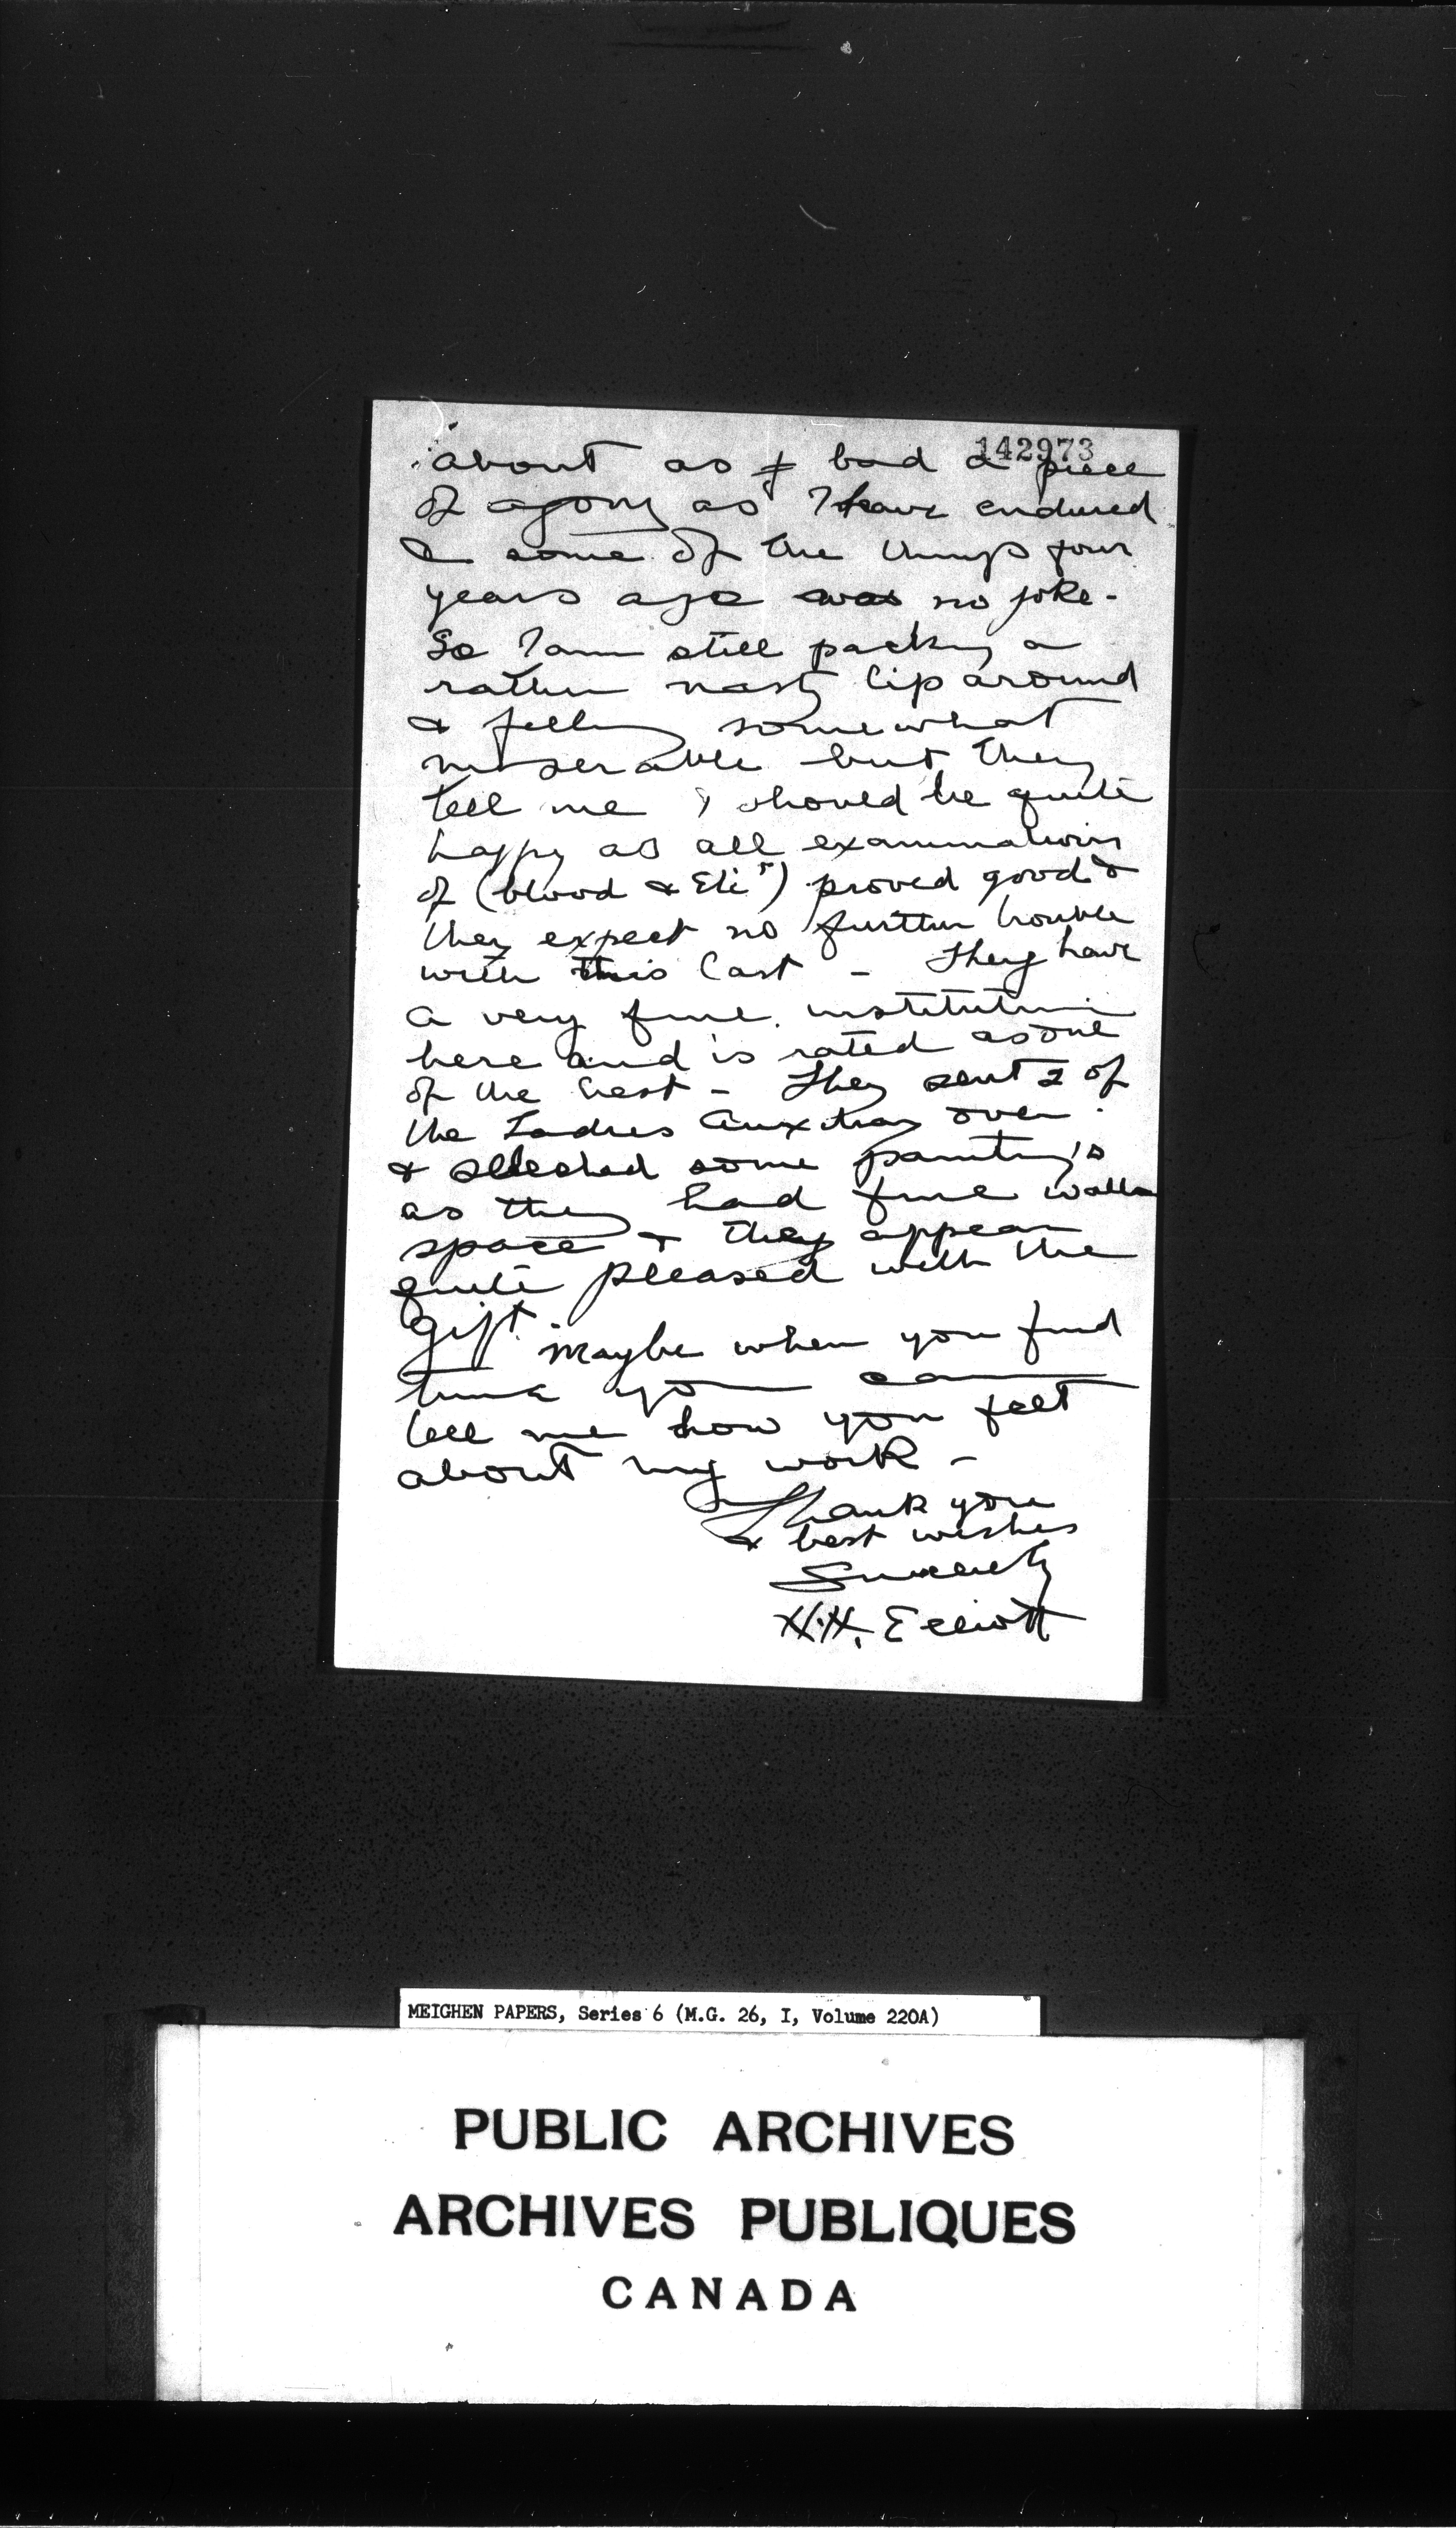 142973
about as bad a piece
of agony as I have endured
& some of the things four
years ago was no joke -
So I am still packing a
rather nasty lip around
& feeling somewhat
miserable but they
tell me I should be quite
happy as all examinations
of (blood & Etc) proved good &
they expect no further trouble
with this last - They have
a very fine institution
here and is rated as one
of the best - They sent 2 of
the Ladies Auxiliary over
& selected some painting's
as they had fine wall
space & they appear
quite pleased with the
gift. Maybe when you find
time you can
tell me how you felt
about my work -
Thank you
& best wishes
Sincerely
H.H. Elliott
MEIGHEN PAPERS, Series 6 (M.G. 26, I, Volume 220A)
PUBLIC ARCHIVES
ARCHIVES PUBLIQUES
CANADA